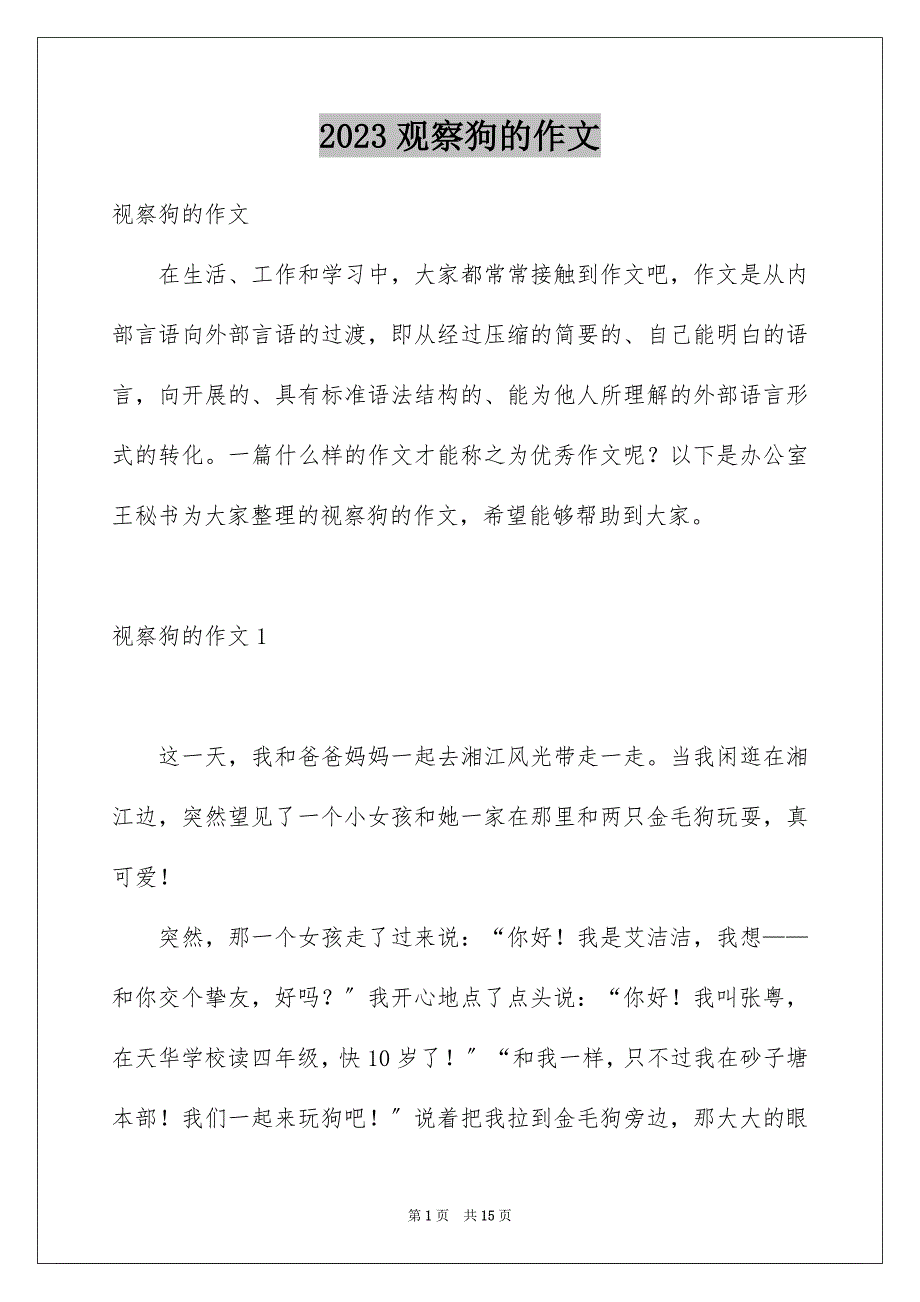 2023观察狗的作文
视察狗的作文
在生活、工作和学习中，大家都常常接触到作文吧，作文是从内
部言语向外部言语的过渡，即从经过压缩的简要的、自己能明白的语
言，向开展的、具有标准语法结构的、能为他人所理解的外部语言形
式的转化。一篇什么样的作文才能称之为优秀作文呢？以下是办公室
王秘书为大家整理的视察狗的作文，希望能够帮助到大家。
视察狗的作文1
这一天，我和爸爸妈妈一起去湘江风光带走一走。当我闲逛在湘
江边，突然望见了一个小女孩和她一家在那里和两只金毛狗玩耍，真
可爱！
突然，那一个女孩走了过来说：“你好！我是艾洁洁，我想——
和你交个挚友，好吗？〞我开心地点了点头说：“你好！我叫张粤，
在天华学校读四年级，快10岁了！〞“和我一样，只不过我在砂子塘
本部！我们一起来玩狗吧！〞说着把我拉到金毛狗旁边，那大大的眼
第1页 共15页